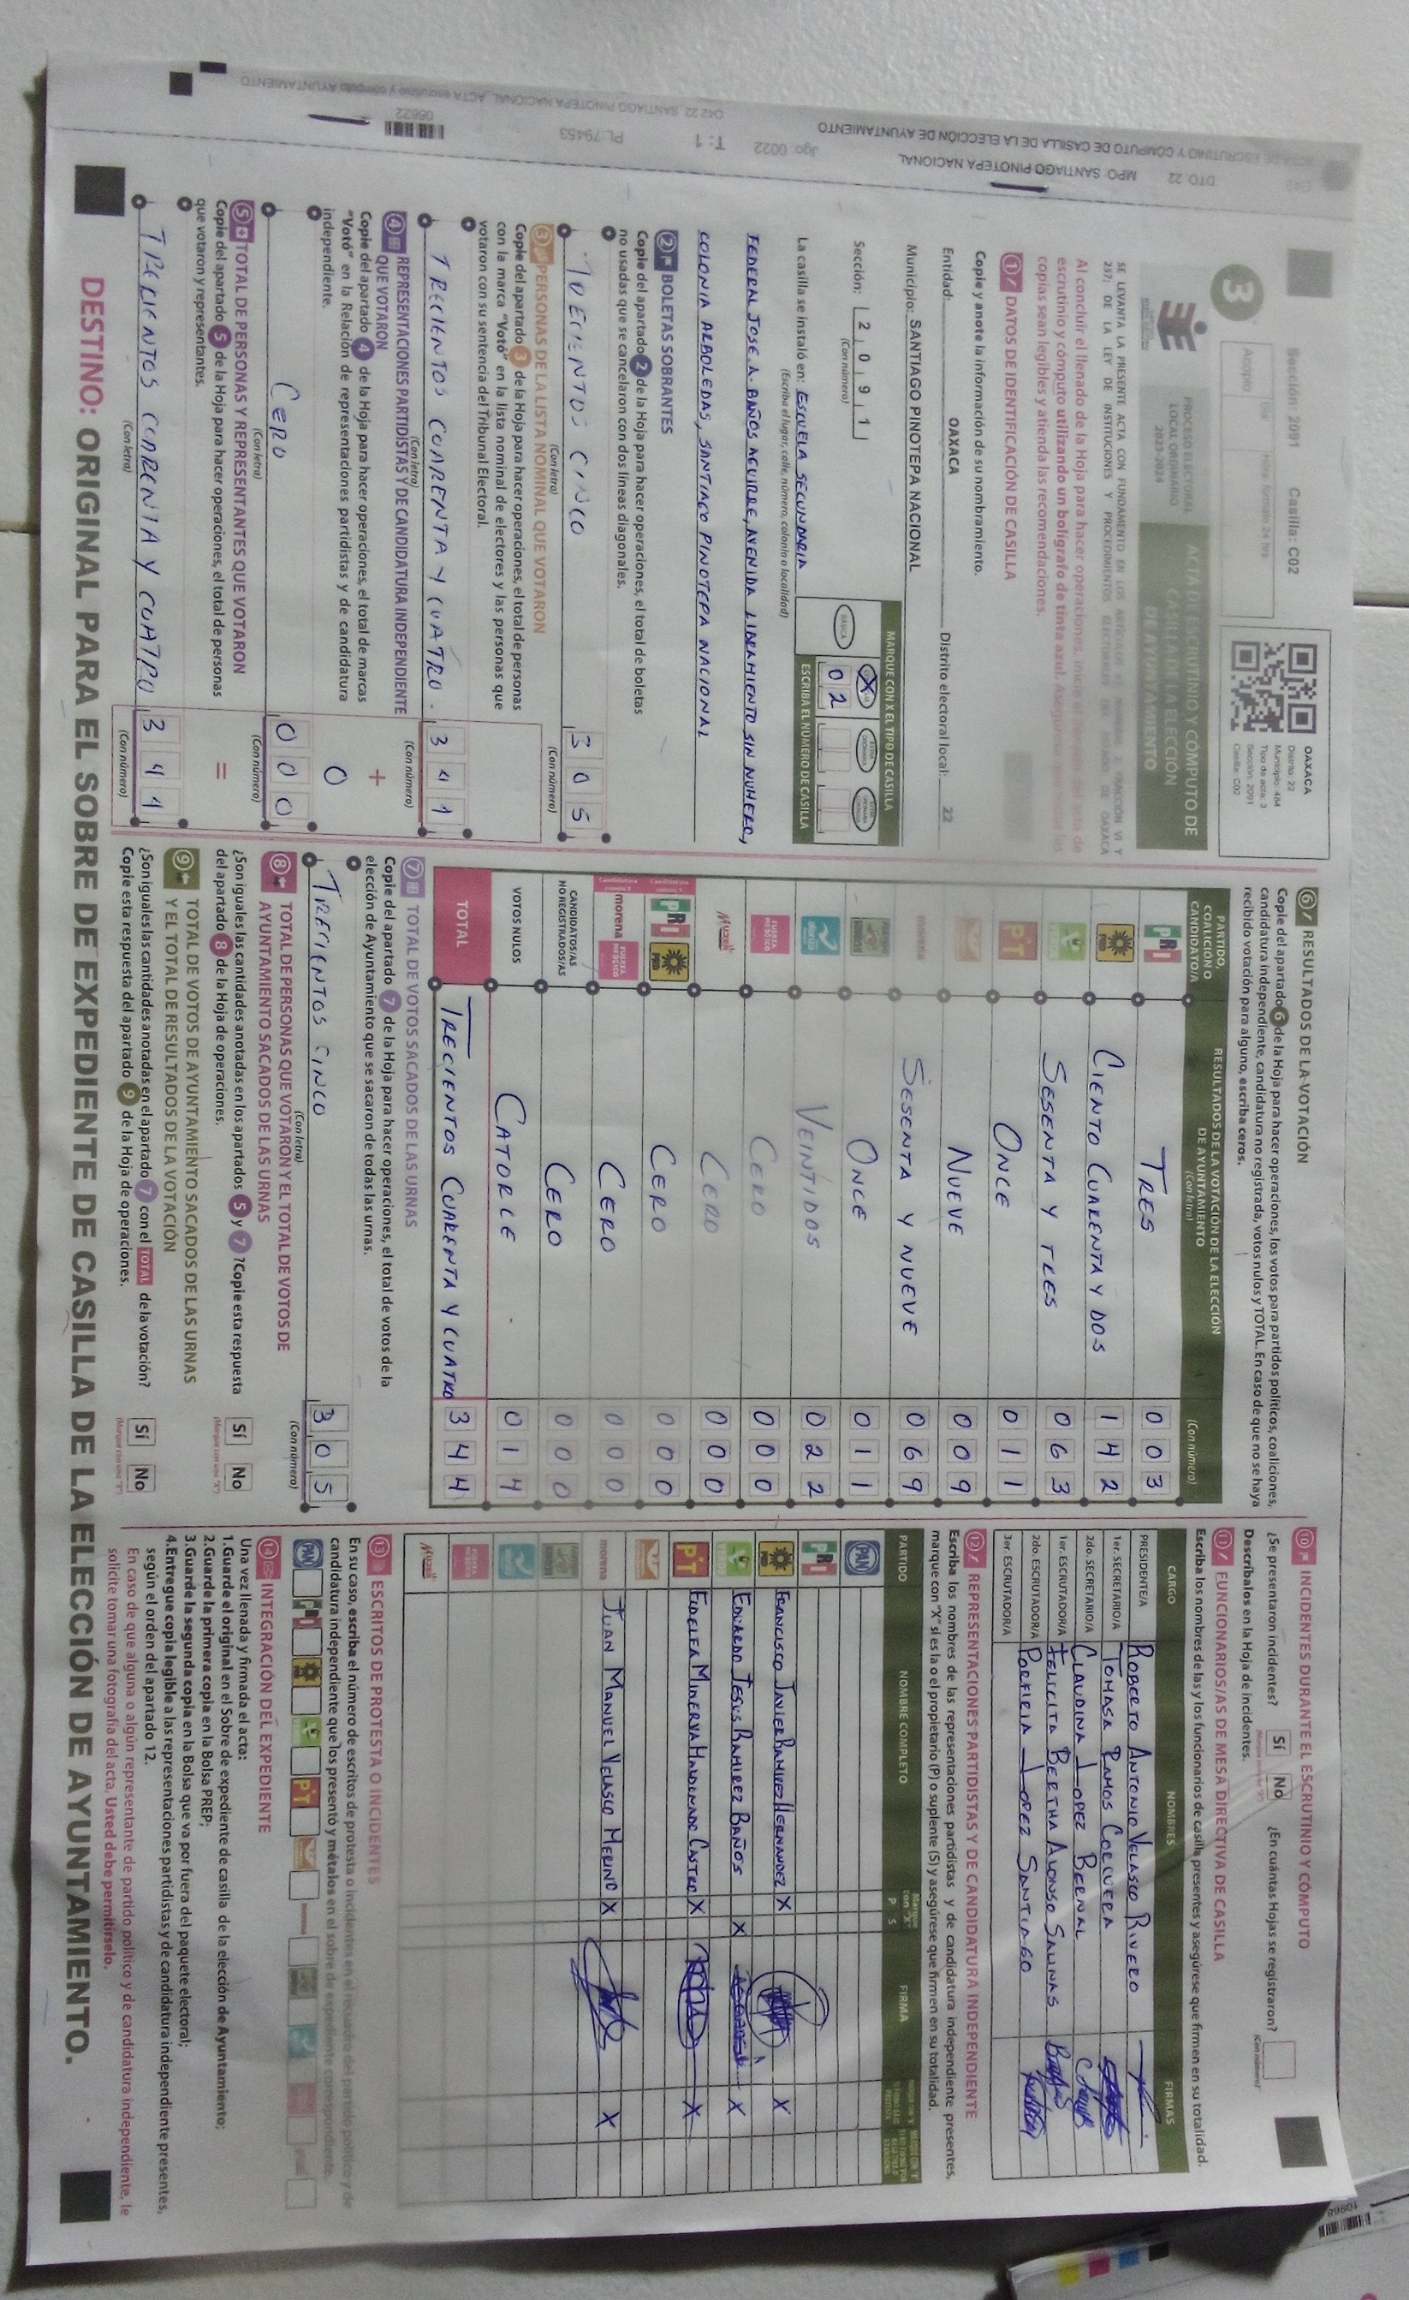 Sección: 2091 Casilla: C02
3
Acopio
OAXACA
Distrito: 22
Municipio: 484
Tipo de acta: 3
Sección: 2091
Casilla: C02
PROCESO ELECTORAL
LOCAL ORDINARIO
2023-2024
ACTA DE ESCRUTINIO Y CÓMPUTO DE
CASILLA DE LA ELECCIÓN
DE AYUNTAMIENTO
Al concluir el llenado de la Hoja para hacer operaciones, inicie el
escrutinio y cómputo utilizando un bolígrafo de tinta azul.
copias sean legibles y atienda las recomendaciones.
1 DATOS DE IDENTIFICACIÓN DE CASILLA
Copie y anote la información de su nombramiento.
Entidad: OAXACA Distrito electoral local: 22
Municipio: SANTIAGO PINOTEPA NACIONAL
Sección: 2 0 9 1
(Con número)
MARQUE CON X EL TIPO DE CASILLA
BÁSICA
X
0 2
ESCRIBA EL NÚMERO DE CASILLA
La casilla se instaló en: ESCUELA SECUNDARIA
(Escriba el lugar, calle, número, colonia o localidad)
FEDERAL JOSE. A. BAÑOS AGUIRRE, AVENIDA LIBRAMIENTO SIN NUMERO,
COLONIA ARBOLEDAS, SANTIAGO PINOTEPA NACIONAL
2 BOLETAS SOBRANTES
Copie del apartado 2 de la Hoja para hacer operaciones, el total de boletas
no usadas que se cancelaron con dos líneas diagonales.
CINCO 3 0 5
(Con letra) (Con número)
3 PERSONAS DE LA LISTA NOMINAL QUE VOTARON
Copie del apartado 3 de la Hoja para hacer operaciones, el total de personas
con la marca "Votó" en la lista nominal de electores y las personas que
votaron con su sentencia del Tribunal Electoral.
TRECIENTOS CUARENTA Y CUATRO. 3 4 4
(Con letra) (Con número)
4 REPRESENTACIONES PARTIDISTAS Y DE CANDIDATURA INDEPENDIENTE
QUE VOTARON
Copie del apartado 4 de la Hoja para hacer operaciones, el total de marcas
"Votó" en la Relación de representaciones partidistas y de candidatura
independiente.
+
0
CERO 0 0 0
(Con letra) (Con número)
5 TOTAL DE PERSONAS Y REPRESENTANTES QUE VOTARON
Copie del apartado 5 de la Hoja para hacer operaciones, el total de personas
que votaron y representantes.
=
TRECIENTOS CORENTA Y CUATRO 3 4 4
(Con letra) (Con número)
6 RESULTADOS DE LA VOTACIÓN
Copie del apartado 6 de la Hoja para hacer operaciones, los votos para partidos políticos, coaliciones,
candidatura independiente, candidatura no registrada, votos nulos y TOTAL. En caso de que no se haya
recibido votación para alguno, escriba ceros.
PARTIDO, COALICIÓN O CANDIDATO/A
RESULTADOS DE LA VOTACIÓN DE LA ELECCIÓN
DE AYUNTAMIENTO
(Con letra) (Con número)
PRI TRES 0 0 3
PRD CIENTO CUARENTA Y DOS 1 4 2
SESENTA Y TRES 0 6 3
PT ONCE 0 1 1
NUEVE 0 0 9
SESENTA Y NUEVE 0 6 9
ONCE 0 1 1
VEINTIDOS 0 2 2
FUERZA MÉXICO CERO 0 0 0
CERO 0 0 0
PRI PRD CERO 0 0 0
morena FUERZA MÉXICO CERO 0 0 0
CANDIDATOS/AS
NO REGISTRADOS/AS CERO 0 0 0
VOTOS NULOS CATORCE 0 1 4
TOTAL TRECIENTOS CUARENTA Y CUATRO 3 4 4
7 TOTAL DE VOTOS SACADOS DE LAS URNAS
Copie del apartado 7 de la Hoja para hacer operaciones, el total de votos de la
elección de Ayuntamiento que se sacaron de todas las urnas.
TRECIENTOS CINCO 3 0 5
(Con letra) (Con número)
8 TOTAL DE PERSONAS QUE VOTARON Y EL TOTAL DE VOTOS DE
AYUNTAMIENTO SACADOS DE LAS URNAS
¿Son iguales las cantidades anotadas en los apartados 5 y 7 ? Copie esta respuesta
del apartado 8 de la Hoja de operaciones.
Sí No
9 TOTAL DE VOTOS DE AYUNTAMIENTO SACADOS DE LAS URNAS
Y EL TOTAL DE RESULTADOS DE LA VOTACIÓN
¿Son iguales las cantidades anotadas en el apartado 7 con el TOTAL de la votación?
Copie esta respuesta del apartado 9 de la Hoja de operaciones.
Sí No
10 INCIDENTES DURANTE EL ESCRUTINIO Y CÓMPUTO
¿Se presentaron incidentes? Sí No ¿En cuántas Hojas se registraron?
Descríbalos en la Hoja de incidentes.
11 FUNCIONARIOS/AS DE MESA DIRECTIVA DE CASILLA
Escriba los nombres de las y los funcionarios de casilla presentes y asegúrese que firmen en su totalidad.
CARGO NOMBRES FIRMAS
PRESIDENTE/A ROBERTO ANTONIO VELASCO RIVERO
1er. SECRETARIO/A TOMASA RAMOS CORCUERA
2do. SECRETARIO/A CLAUDINA LOPEZ BERNAL
1er. ESCRUTADOR/A FELICITA BERTHA ALONSO SALINAS
2do. ESCRUTADOR/A PORFIRIA LOPEZ SANTIAGO
3er. ESCRUTADOR/A
12 REPRESENTACIONES PARTIDISTAS Y DE CANDIDATURA INDEPENDIENTE
Escriba los nombres de las representaciones partidistas y de candidatura independiente presentes,
marque con "X" si es la o el propietario (P) o suplente (S) y asegúrese que firmen en su totalidad.
PARTIDO NOMBRE COMPLETO P S FIRMA
PAN
PRI
PRD FRANCISCO JAVIER RAMIREZ HERNANDEZ X X
EDUARDO JESUS RAMIREZ BAÑOS X X
PT FIDELFA MINERVA MALDONADO CASTRO X X
morena JUAN MANUEL VELASCO MERINO X X
13 ESCRITOS DE PROTESTA O INCIDENTES
En su caso, escriba el número de escritos de protesta o incidentes en el recuadro del partido político y de
candidatura independiente que los presentó y métalos en el sobre de expediente correspondiente.
PAN PRI PRD PT
14 INTEGRACIÓN DEL EXPEDIENTE
Una vez llenada y firmada el acta:
1.Guarde el original en el Sobre de expediente de casilla de la elección de Ayuntamiento;
2.Guarde la primera copia en la Bolsa PREP;
3.Guarde la segunda copia en la Bolsa que va por fuera del paquete electoral;
4.Entregue copia legible a las representaciones partidistas y de candidatura independiente presentes,
según el orden del apartado 12.
En caso de que alguna o algún representante de partido político y de candidatura independiente, le
solicite tomar una fotografía del acta. Usted debe permitírselo.
DESTINO: ORIGINAL PARA EL SOBRE DE EXPEDIENTE DE CASILLA DE LA ELECCIÓN DE AYUNTAMIENTO.
ACTA DE ESCRUTINIO Y CÓMPUTO DE CASILLA DE LA ELECCIÓN DE AYUNTAMIENTO
DTO. 22 MPO. SANTIAGO PINOTEPA NACIONAL
Jgo: 0022 T: 1 PL: 79453
042 22 SANTIAGO PINOTEPA NACIONAL ACTA escrutinio y cómputo AYUNTAMIENTO